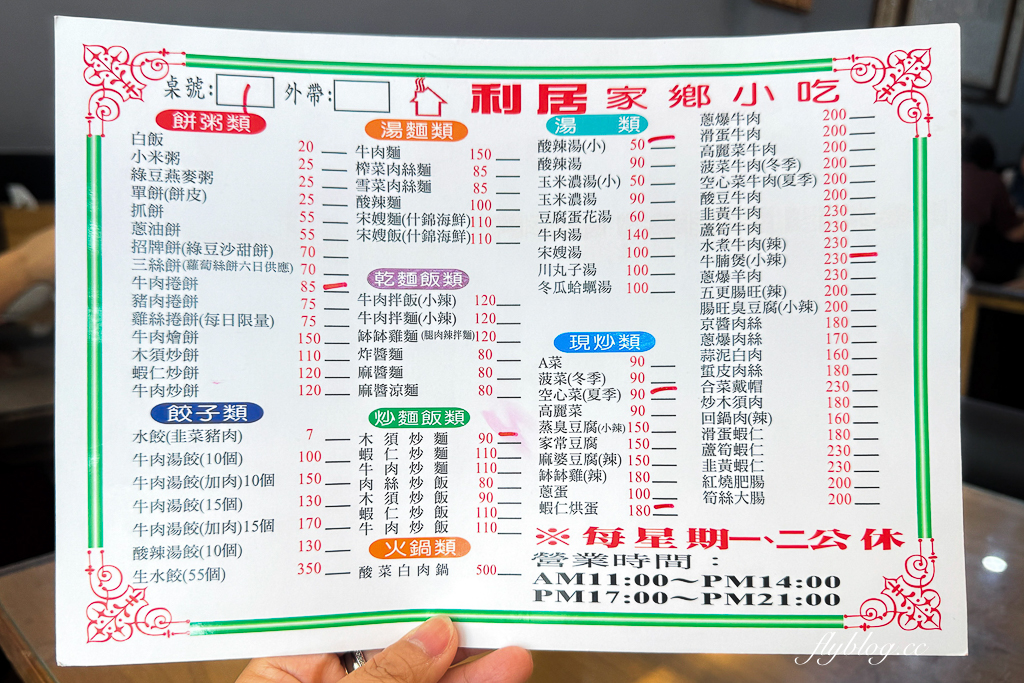 桌號: 1 外帶:
利居家鄉小吃
餅粥類
白飯 20
小米粥 25
綠豆燕麥粥 25
單餅(餅皮) 25
抓餅 55
蔥油餅 55
招牌餅(綠豆沙甜餅) 70
三絲餅(蘿蔔絲餅六日供應) 70
牛肉捲餅 85
豬肉捲餅 75
雞絲捲餅(每日限量) 75
牛肉燴餅 150
木須炒餅 110
蝦仁炒餅 120
牛肉炒餅 120
餃子類
水餃(韭菜豬肉) 7
牛肉湯餃(10個) 100
牛肉湯餃(加肉)10個 150
牛肉湯餃(15個) 130
牛肉湯餃(加肉)15個 170
酸辣湯餃(10個) 130
生水餃(55個) 350
湯麵類
牛肉麵 150
榨菜肉絲麵 85
雪菜肉絲麵 85
酸辣麵 100
宋嫂麵(什錦海鮮) 110
宋嫂飯(什錦海鮮) 110
乾麵飯類
牛肉拌飯(小辣) 120
牛肉拌麵(小辣) 120
缽缽雞麵(腿肉辣拌麵) 120
炸醬麵 80
麻醬麵 80
麻醬涼麵 80
炒麵飯類
木須炒麵 90
蝦仁炒麵 110
牛肉炒麵 110
肉絲炒飯 80
木須炒飯 90
蝦仁炒飯 110
牛肉炒飯 110
火鍋類
酸菜白肉鍋 500
湯類
酸辣湯(小) 50
酸辣湯 90
玉米濃湯(小) 50
玉米濃湯 90
豆腐蛋花湯 60
牛肉湯 140
宋嫂湯 100
川丸子湯 100
冬瓜蛤蠣湯 100
現炒類
A菜 90
菠菜(冬季) 90
空心菜(夏季) 90
高麗菜 90
蒸臭豆腐(小辣) 150
家常豆腐 150
麻婆豆腐(辣) 150
缽缽雞(辣) 180
蔥蛋 100
蝦仁烘蛋 180
蔥爆牛肉 200
滑蛋牛肉 200
高麗菜牛肉 200
菠菜牛肉(冬季) 200
空心菜牛肉(夏季) 200
酸豆牛肉 200
韭黃牛肉 230
蘆筍牛肉 230
水煮牛肉(辣) 230
牛腩煲(小辣) 230
蔥爆羊肉 230
五更腸旺(辣) 200
腸旺臭豆腐(小辣) 200
京醬肉絲 180
蔥爆肉絲 170
蒜泥白肉 160
蜇皮肉絲 180
合菜戴帽 230
炒木須肉 180
回鍋肉(辣) 160
滑蛋蝦仁 180
蘆筍蝦仁 230
韭黃蝦仁 230
紅燒肥腸 200
筍絲大腸 200
※每星期一、二公休
營業時間：
AM11:00～PM14:00
PM17:00～PM21:00
flyblog.cc